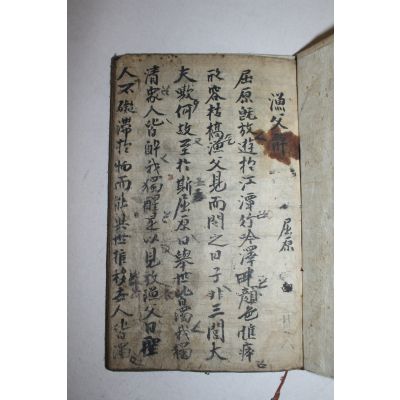 漁父辭
屈原
屈原旣放遊於江潭行吟澤畔顔色憔悴
形容枯槁漁父見而問之曰子非三閭大
夫歟何故至於斯屈原曰擧世皆濁我獨
清衆人皆醉我獨醒是以見放漁父曰聖
人不凝滯於物而能與世推移世人皆濁